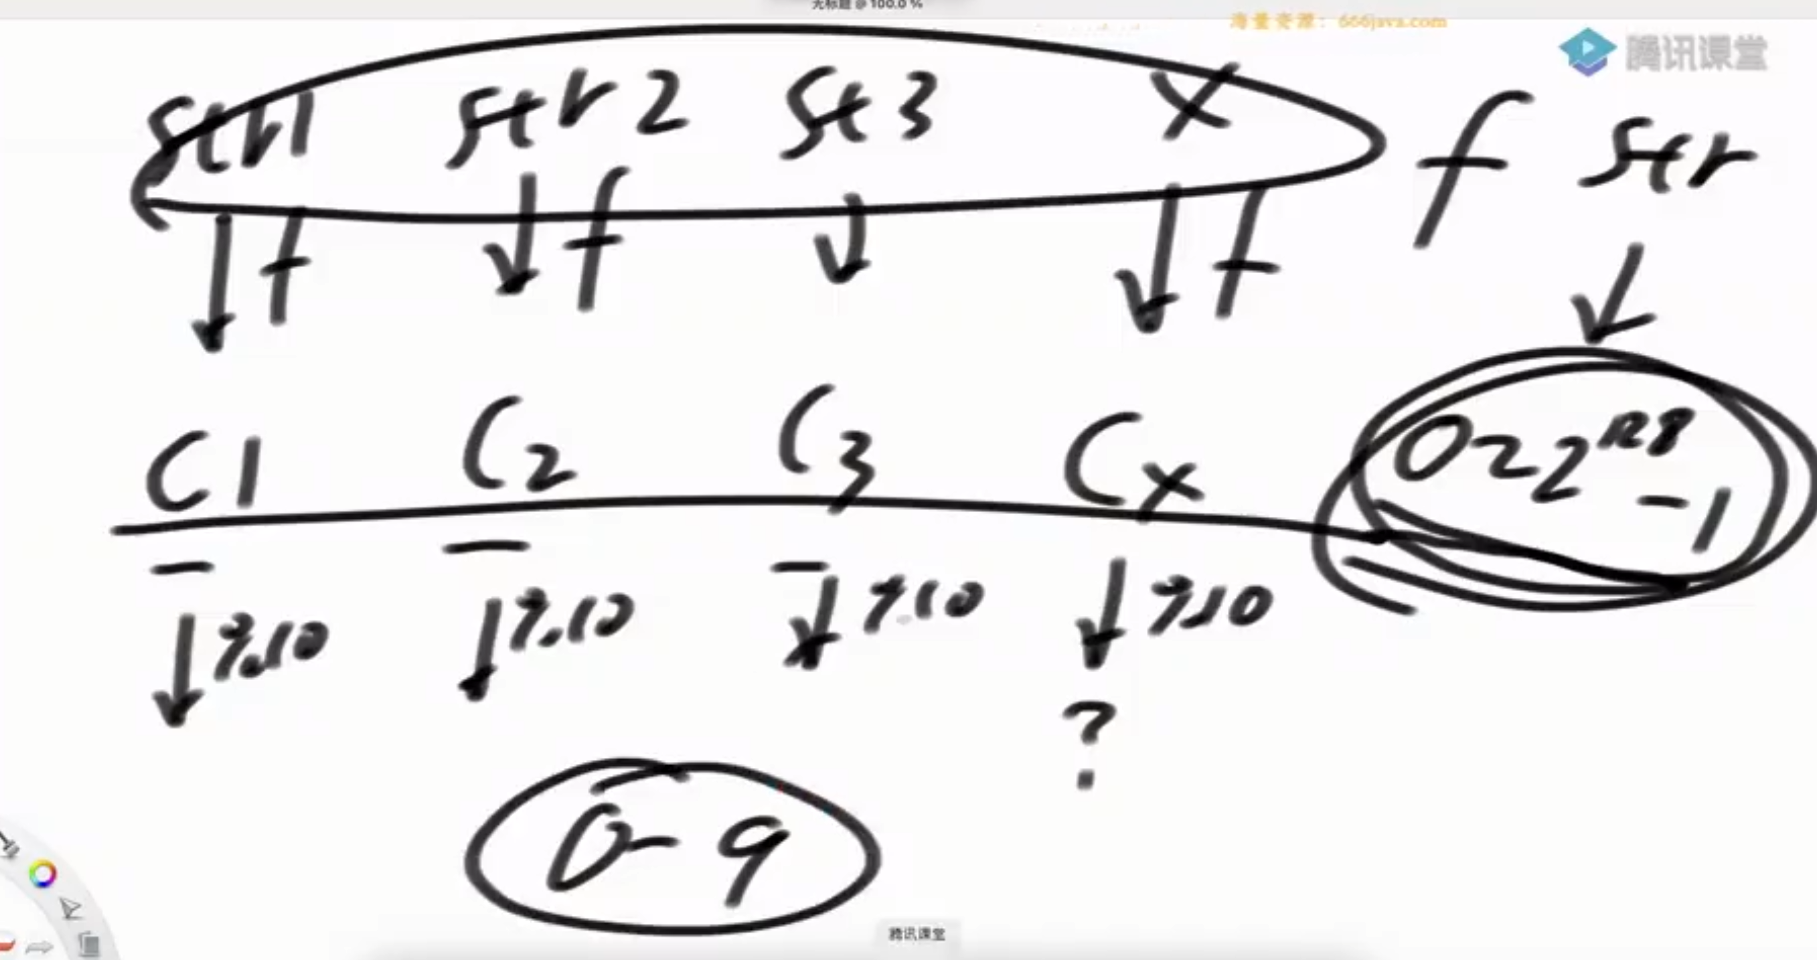 无标题 @ 100.0 %
海量资源：666java.com
腾讯课堂
str1 str2 st3 X f str
f f f
C1 C2 C3 Cx 0~2^128 -1
%10 %10 %10 %10
?
0-9
腾讯课堂